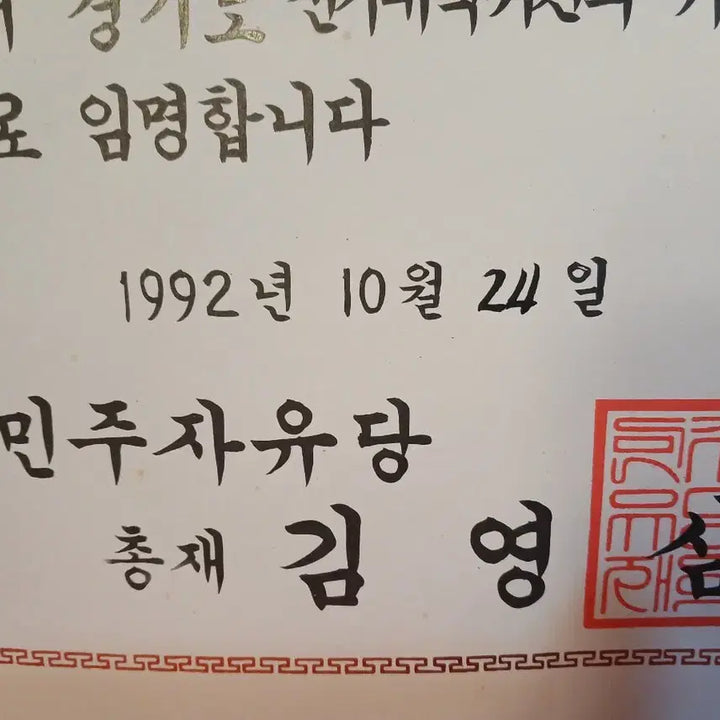 경기도
로 임명합니다
1992년 10월 24일
민주자유당
총재 김 영 삼